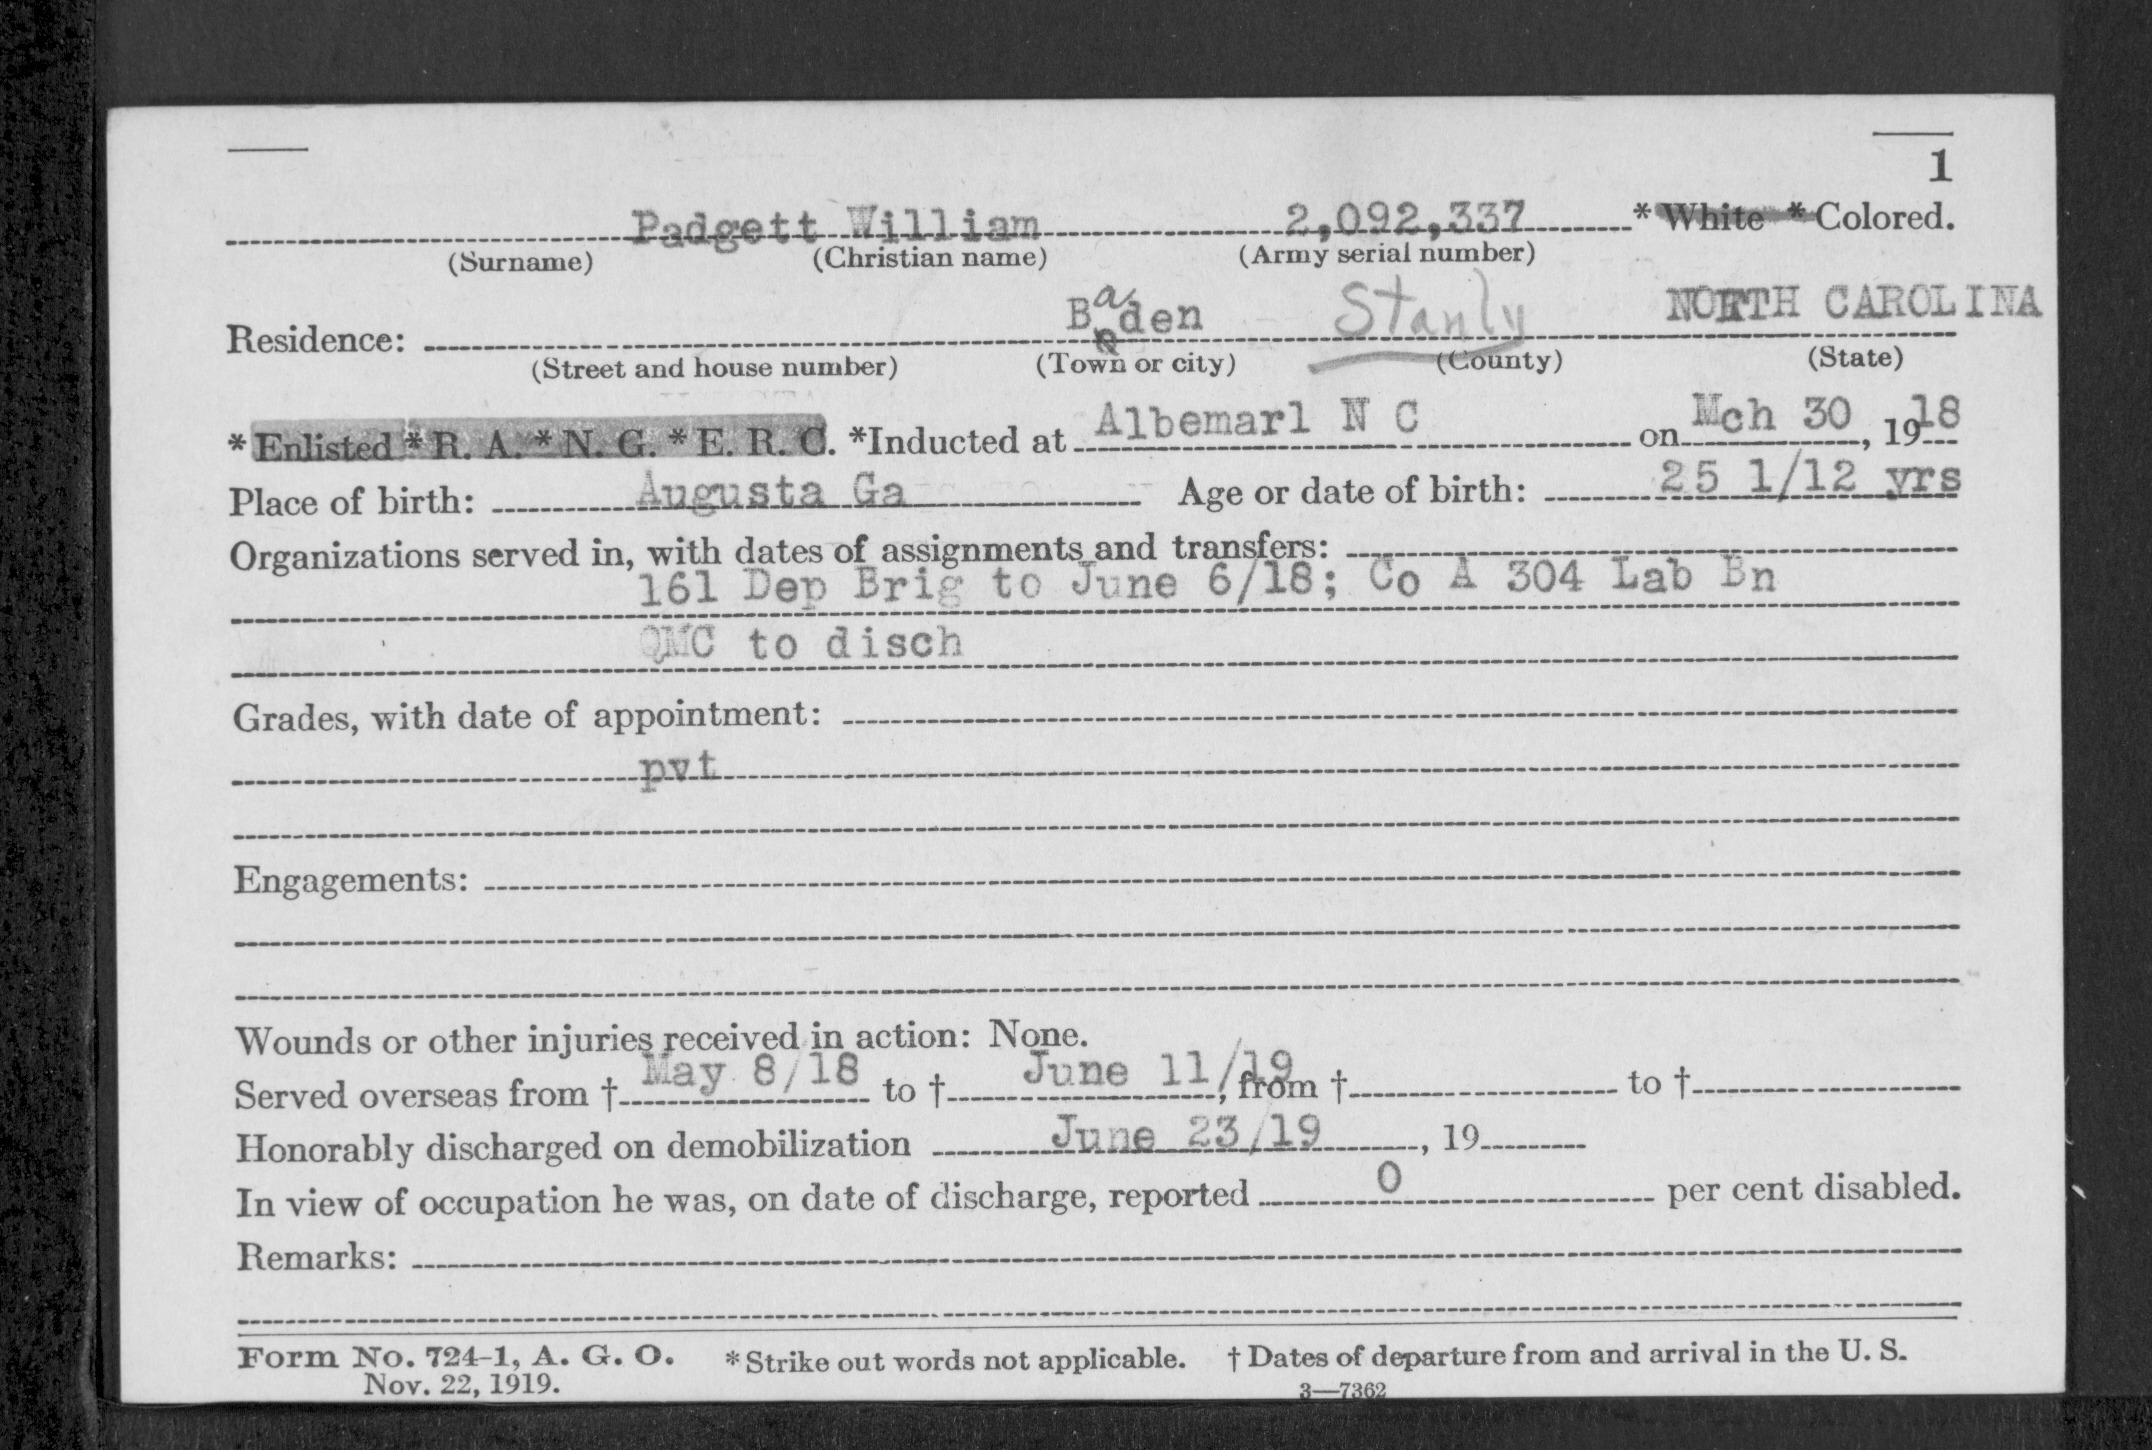 1
Padgett William 2,092,337 * White * Colored.
(Surname) (Christian name) (Army serial number)
Residence: Baden Stanly NORTH CAROLINA
(Street and house number) (Town or city) (County) (State)
* Enlisted * R. A. * N. G. * E. R. C. *Inducted at Albemarl N C on Mch 30, 1918
Place of birth: Augusta Ga Age or date of birth: 25 1/12 yrs
Organizations served in, with dates of assignments and transfers:
161 Dep Brig to June 6/18; Co A 304 Lab Bn
QMC to disch
Grades, with date of appointment:
pvt
Engagements:
Wounds or other injuries received in action: None.
Served overseas from † May 8/18 to † June 11/19, from † to †
Honorably discharged on demobilization June 23/19, 19
In view of occupation he was, on date of discharge, reported 0 per cent disabled.
Remarks:
Form No. 724-1, A. G. O. * Strike out words not applicable. † Dates of departure from and arrival in the U. S.
Nov. 22, 1919. 3—7362